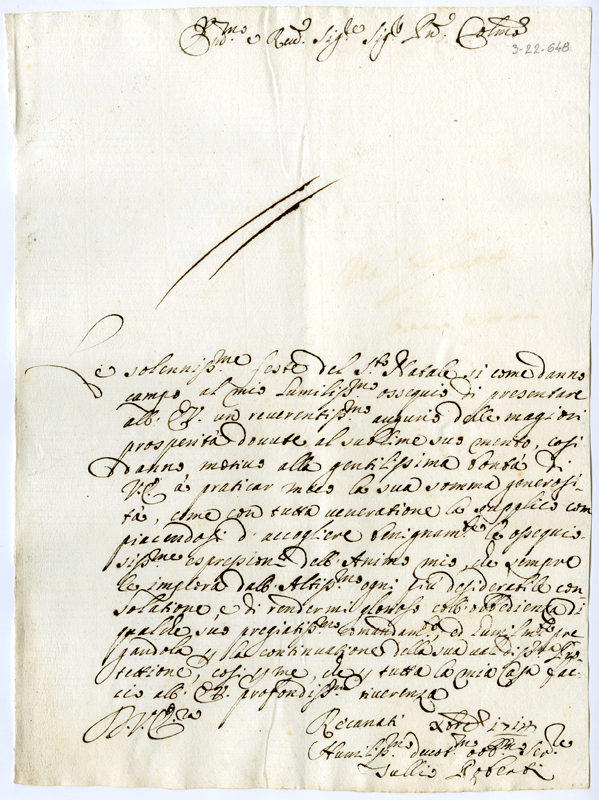 Sig.re Sig.r Pad.e Col.mo
3-22-648
Le solenniss.me feste del S.to Natale si come danno
campo al mio humiliss.mo ossequio di presentare
all' E.V. un reverentiss.mo augurio delle maggiori
prosperità dovute al sublime suo merito, così
danno motivo alla gentilissima bontà di
V.E. à praticar meco la sua somma generosi-
tà, come con tutta veneratione la supplico com
piacendosi d'accogliere benignam.te l'ossequio-
siss.me espressioni dell'Animo mio, che sempre
le implora dall'Altiss.mo ogni più desiderabile con
solatione, e di rendermi glorioso coll'obbedienza di
qualche suo pregiatiss.mo comandam.to, ed humilm.te pre
gandola p la continuatione della sua validiss.ma Pro
tettione, così p me, che p tutta la mia Casa fac-
cio all' E.V. profondiss.ma riverenza
D.V.E.
Recanati
Humiliss.mo devot.mo obb.mo Ser.re
Tullio Roberti